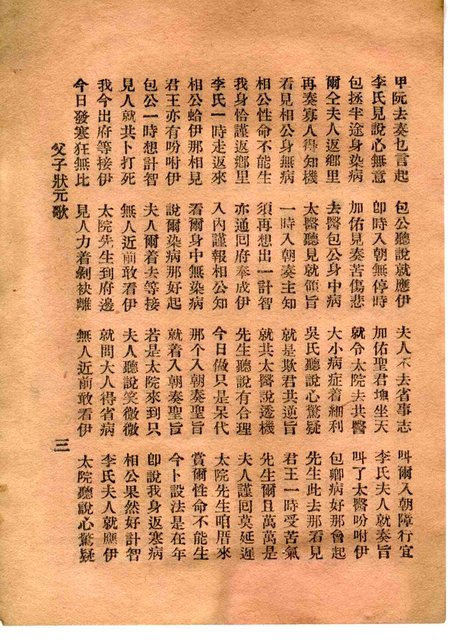 甲阮去奏乜言起 包公聽說就應伊 夫人不去省事志 叫爾入朝障行宜
李氏見說心無意 即時入朝無停時 加佑聖君坐天 李氏夫人就奏旨
包拯半途身染病 加佑見奏苦傷悲 就令太院去共醫 叫了太醫吩咐伊
爾仝夫人返鄉里 去醫包公身中病 大小病症着細利 包卿病好那會起
再奏寡人得知機 太醫聽見就領旨 吳氏聽說心驚疑 先生此去那看見
看見相公身無病 一時入朝奏主知 就是欺君共逆旨 君王一時受苦氣
相公性命不能生 須再想出一計智 就共太醫說透機 先生爾且萬萬是
我身恰謹返鄉里 亦通回府奉成伊 先生聽說有合理 夫人謹回莫延遲
李氏一時走返來 入內謹報相公知 今日做只是呆代 太院先生咱厝來
相公蛤伊那相見 看爾身中無染病 那个入朝奏聖旨 賞爾性命不能生
君王亦有吩咐伊 說爾染病那好起 就着入朝奏聖旨 今卜設法是在年
包公一時想計智 夫人爾着去等接 若是太院來到只 即說我身返寒病
見人就共卜打死 無人近前敢看伊 夫人聽說笑微微 相公果然好計智
我今出府等接伊 太院先生到府邊 就問大人得省病 李氏夫人就應伊
今日發寒狂無比 見人力着剝袂離 無人近前敢看伊 太院聽說心驚疑
父子狀元歌 三